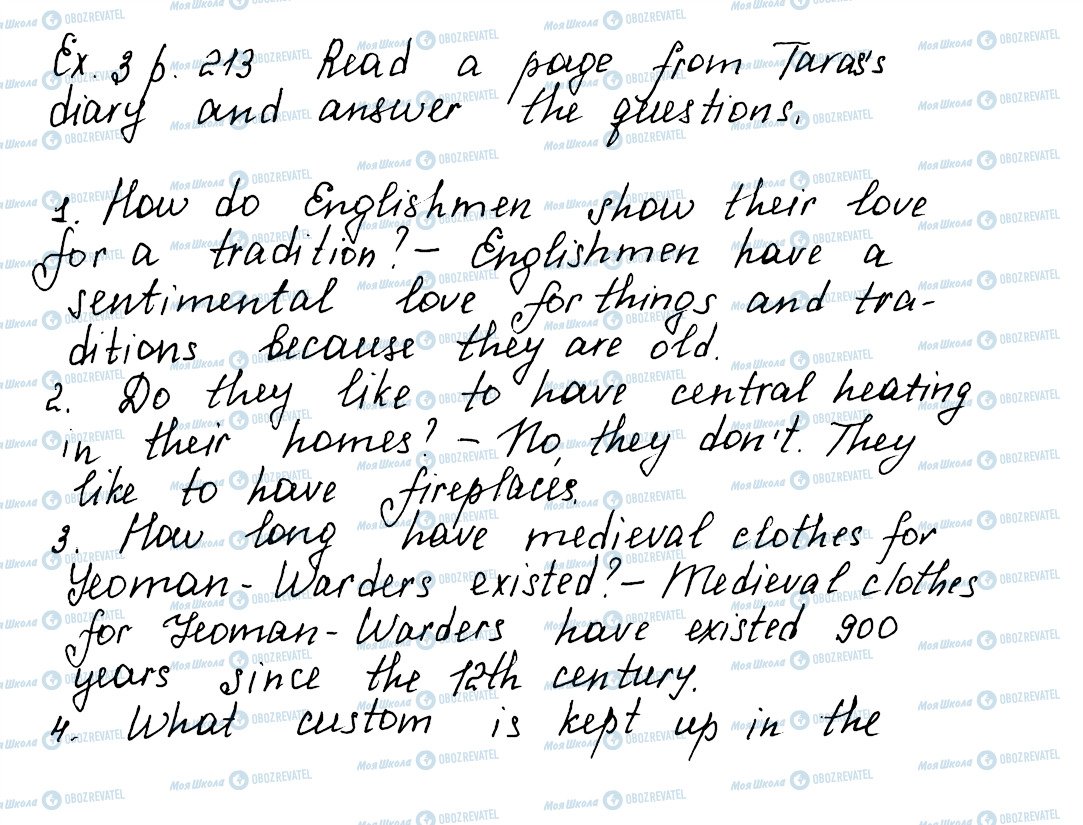 Ex. 3 p. 213 Read a page from Taras's
diary and answer the questions.
1. How do Englishmen show their love
for a tradition? – Englishmen have a
sentimental love for things and tra-
ditions because they are old.
2. Do they like to have central heating
in their homes? – No, they don't. They
like to have fireplaces.
3. How long have medieval clothes for
Yeoman-Warders existed? – Medieval clothes
for Yeoman-Warders have existed 900
years since the 12th century.
4. What custom is kept up in the